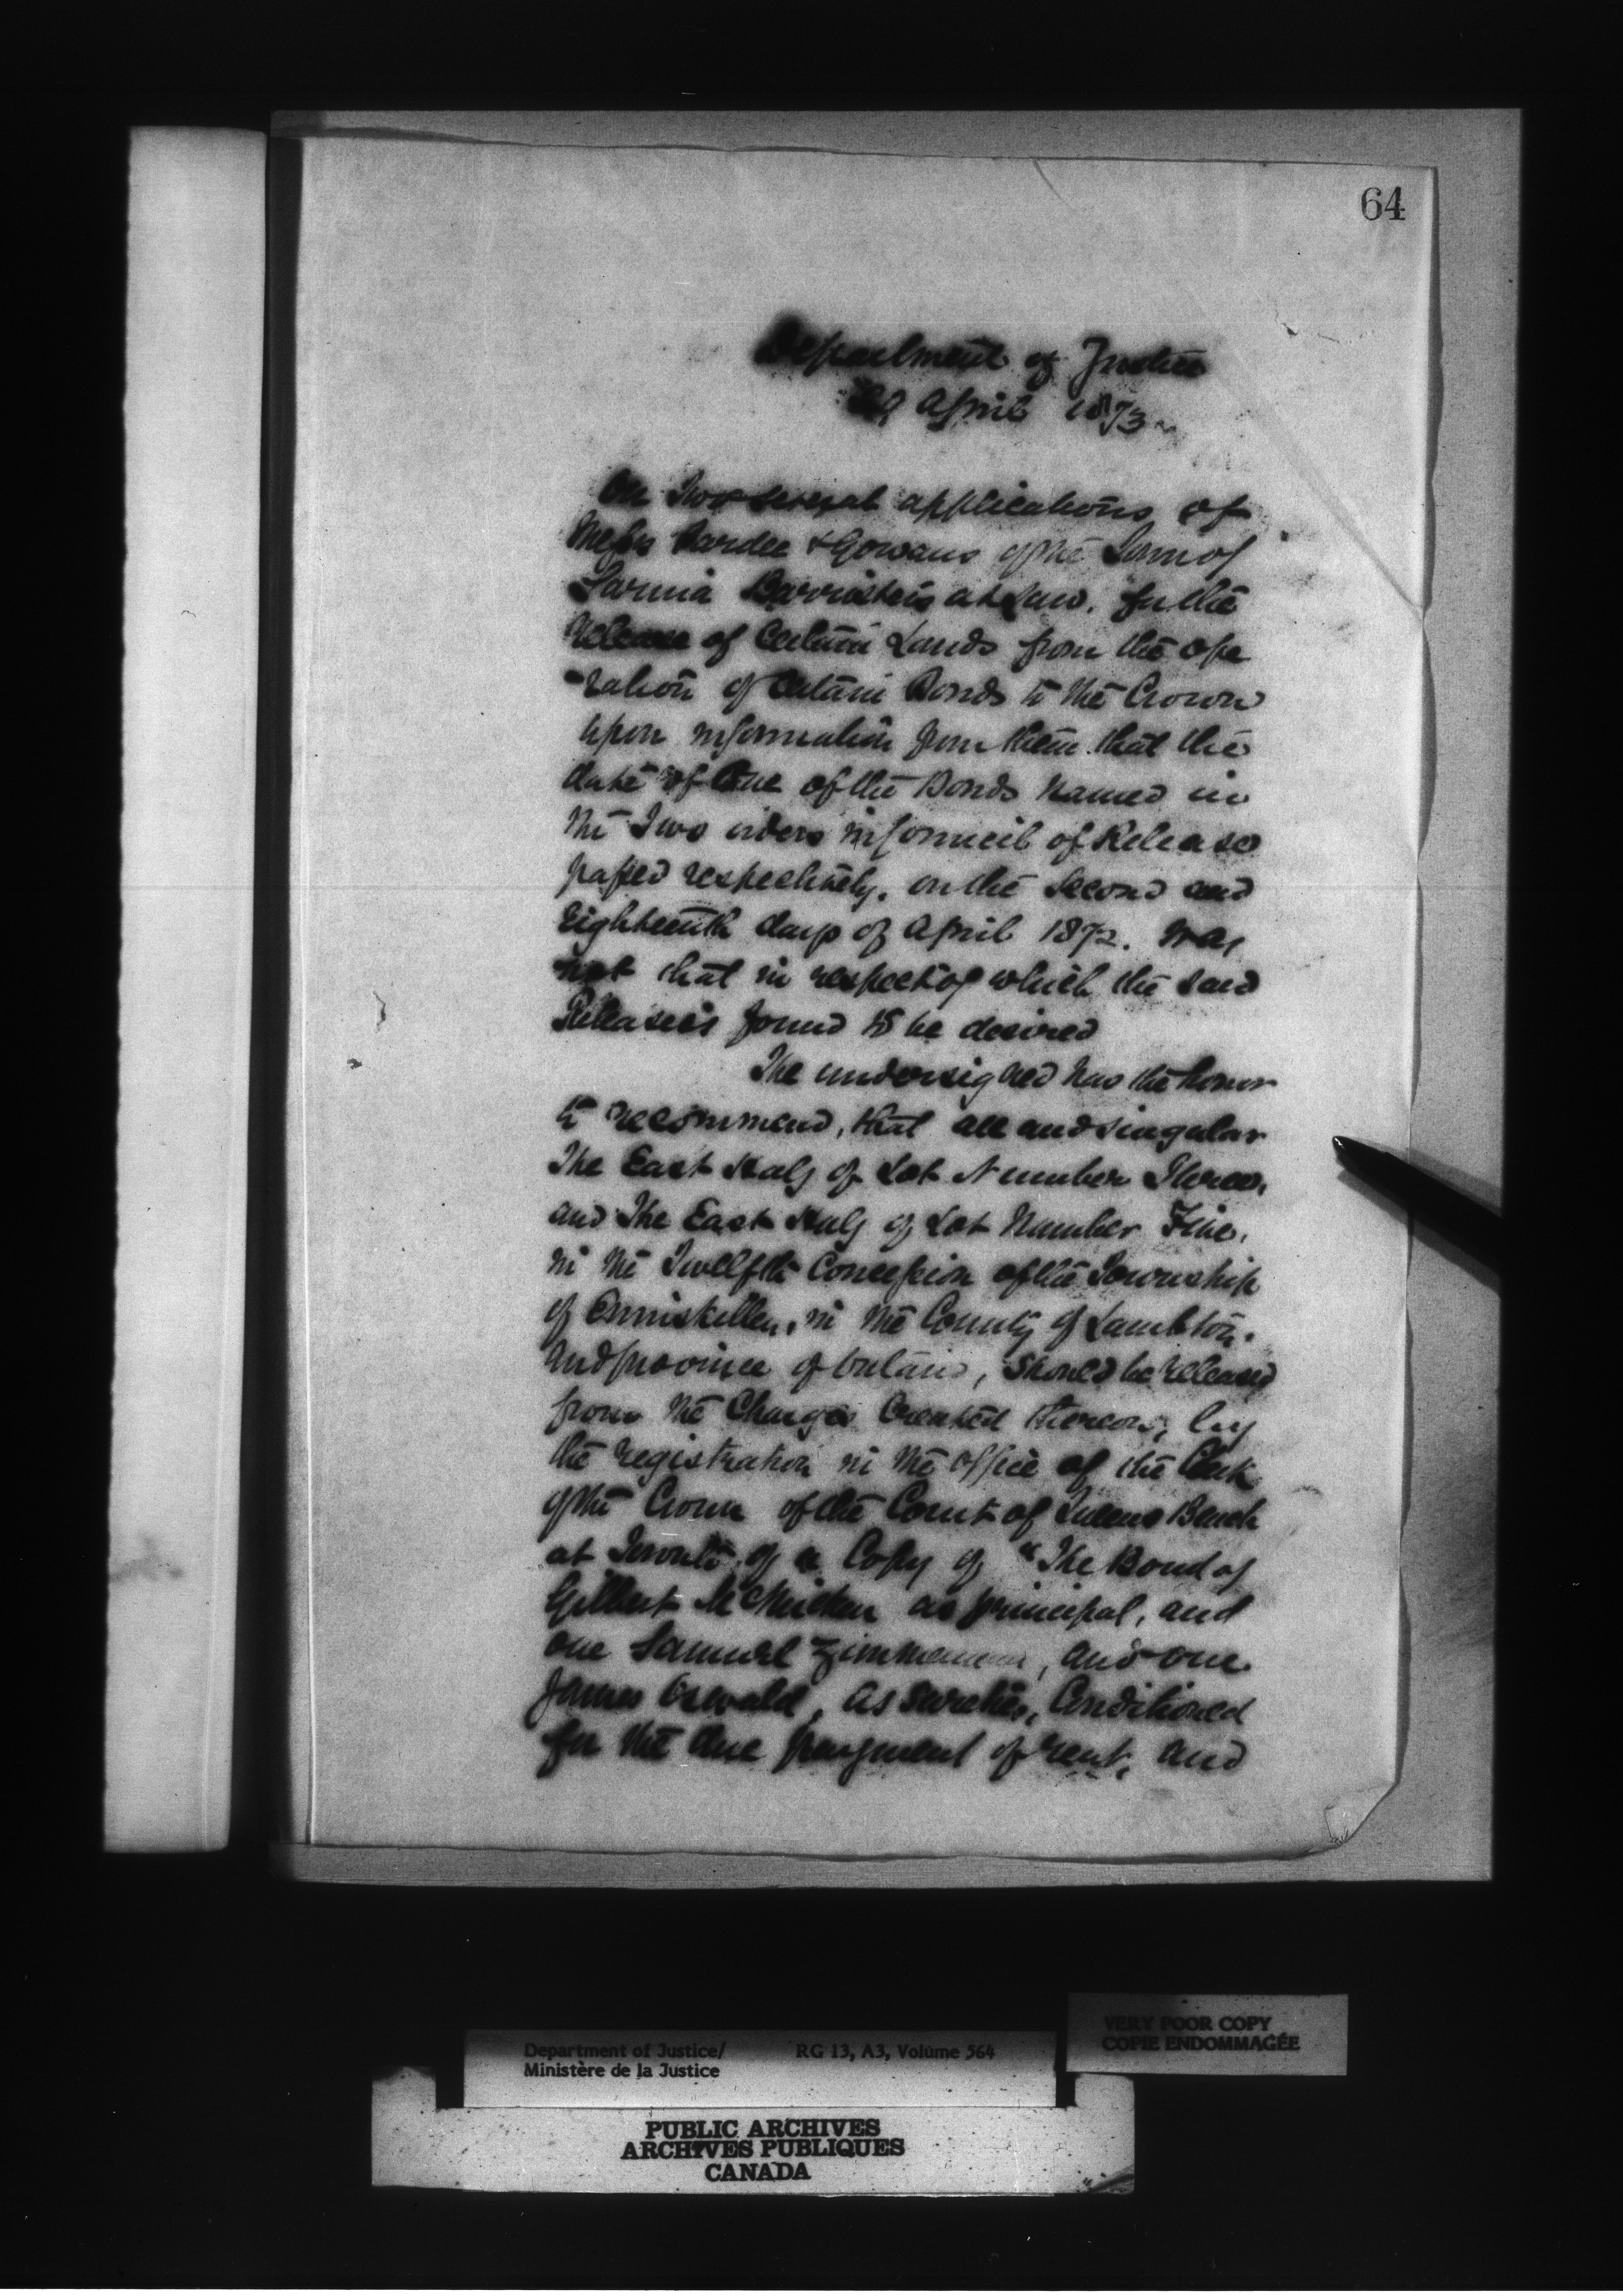 64
Department of Justice
29 April 1873
On Two several applications of
Messrs Pardee & Gowans of the Town of
Sarnia Barristers at Law. for the
Release of Certain Lands from the ope
-ration of Certain Bonds to the Crown
upon information from them that the
date of One of the Bonds named in
the Two orders in Council of Release
passed respectively, on the Second and
Eighteenth days of April 1872. was
not that in respect of which the said
Release is found to be desired
The undersigned has the honor
to recommend, that all and singular
The East Half of Lot Number Three,
and The East Half of Lot Number Five,
in the Twelfth Concession of the Township
of Enniskillen, in the County of Lambton,
And province of Ontario, should be released
from the Charges Created thereon, by
the registration in the office of the Clerk
of the Crown of the Court of Queens Bench
at Toronto, of a Copy of "The Bond of
Gilbert McMicken as principal, and
one Samuel Zimmerman, and one
James Oswald, as sureties, Conditioned
for the due payment of rent, and
Department of Justice/
Ministère de la Justice
RG 13, A3, Volume 564
VERY POOR COPY
COPIE ENDOMMAGÉE
PUBLIC ARCHIVES
ARCHIVES PUBLIQUES
CANADA